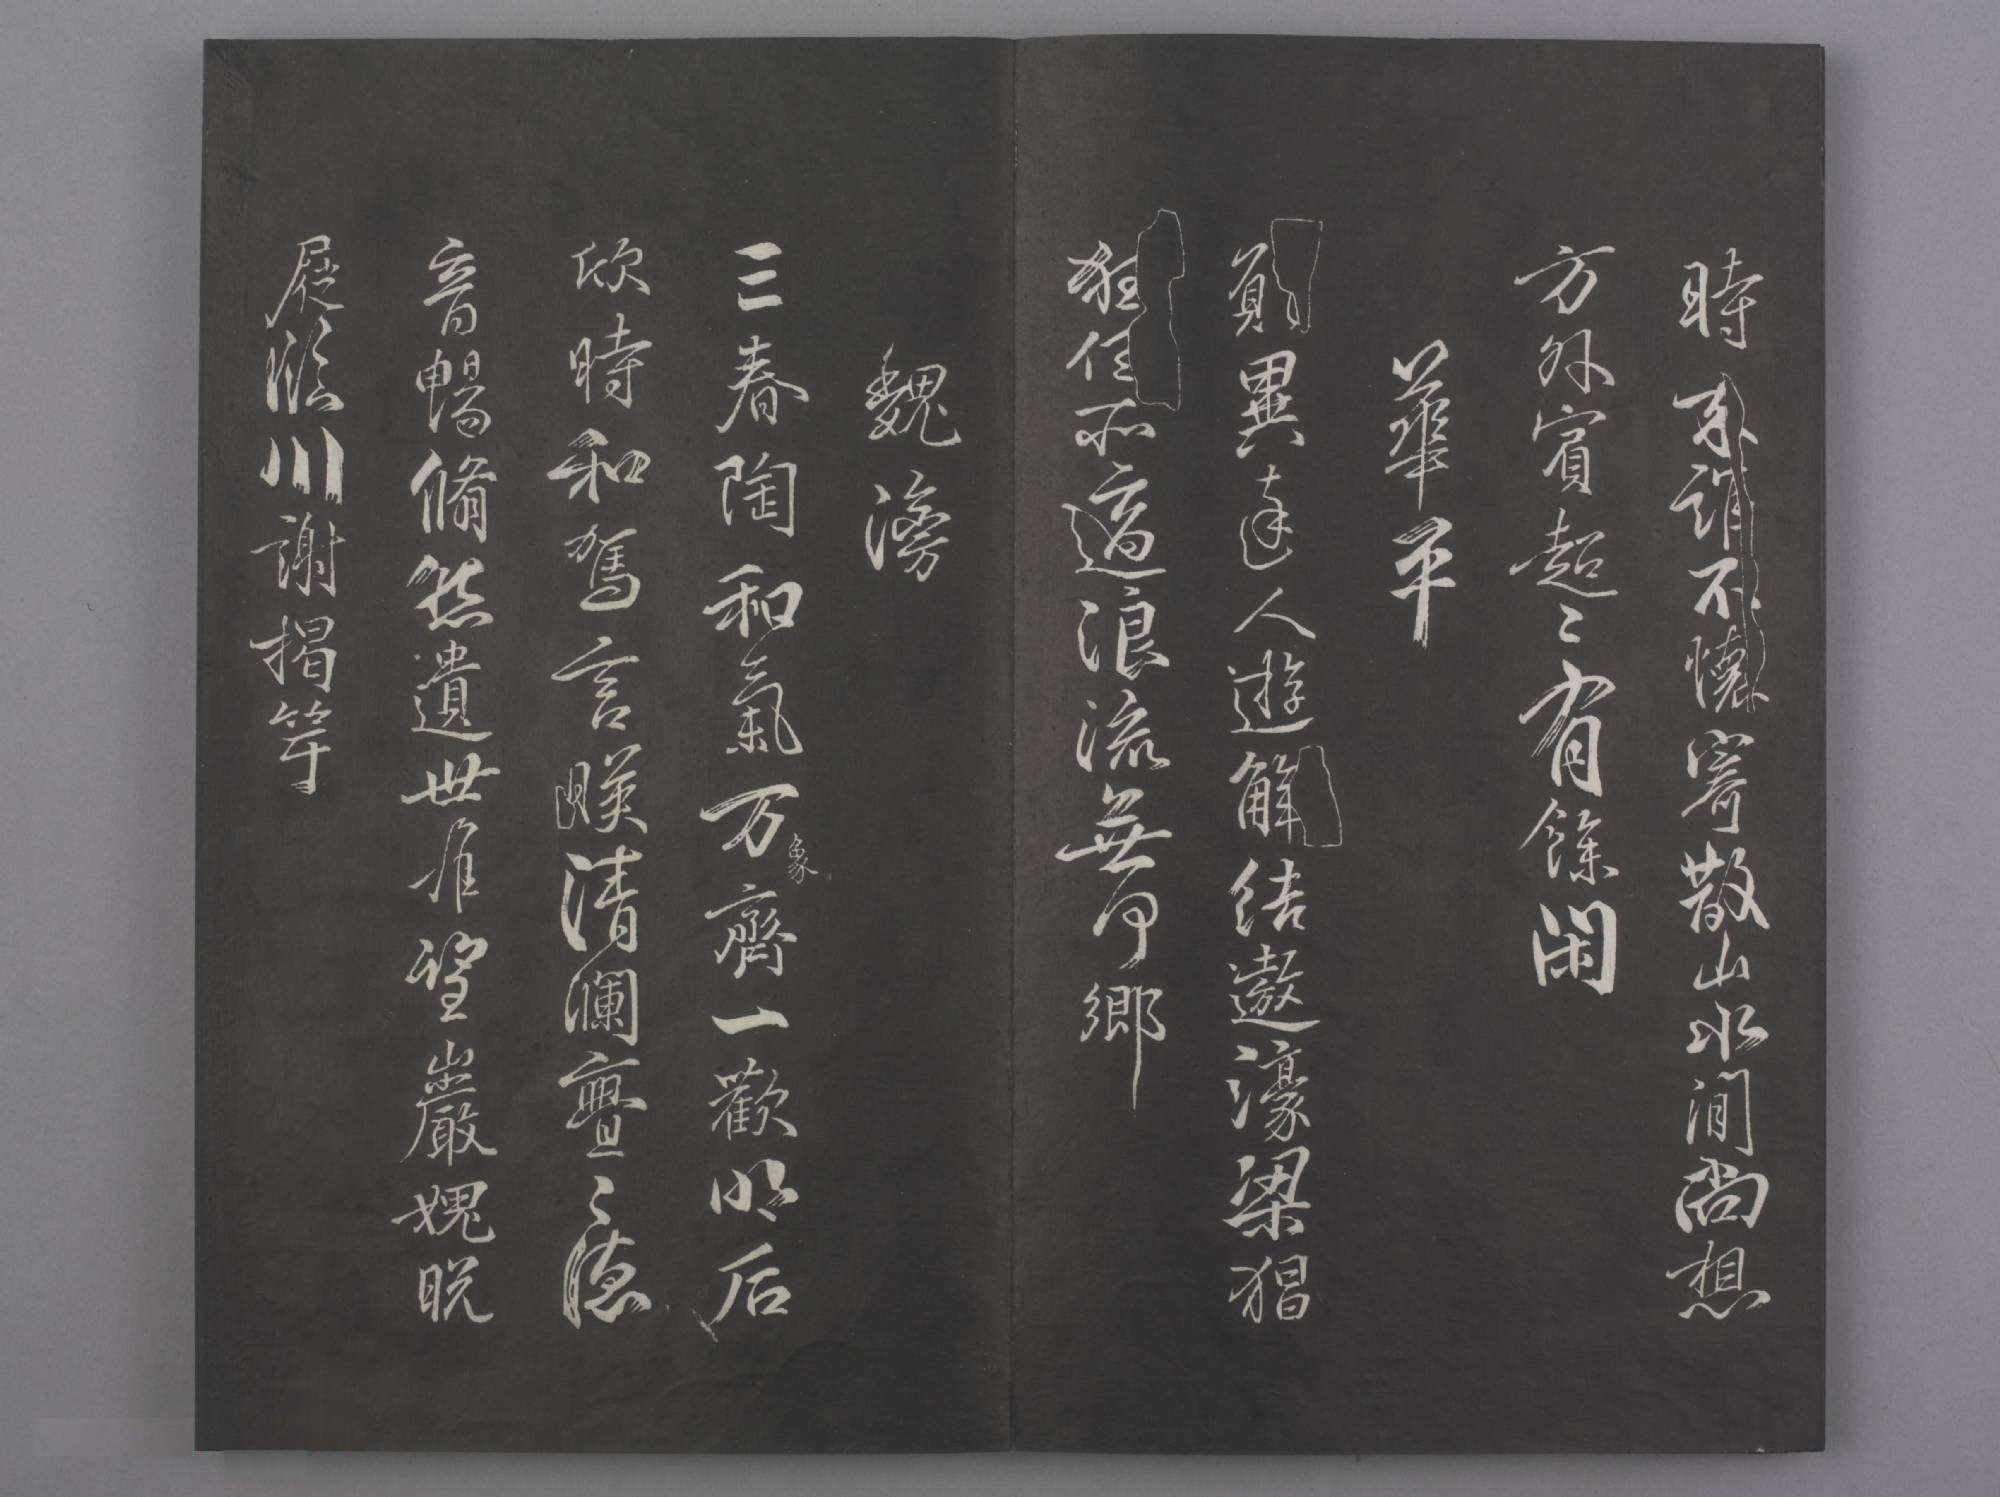 時来誰不懷寄散山水間尚想
方外賓超〻有餘閑
華平
願異達人遊解結遨濠梁猖
狂任所適浪流無何鄉
魏滂
三春陶和氣万象齊一歡明后
欣時和駕言暎清瀾亹〻德
音暢脩然遺世難望巖愧脫
屣臨川謝揭竿